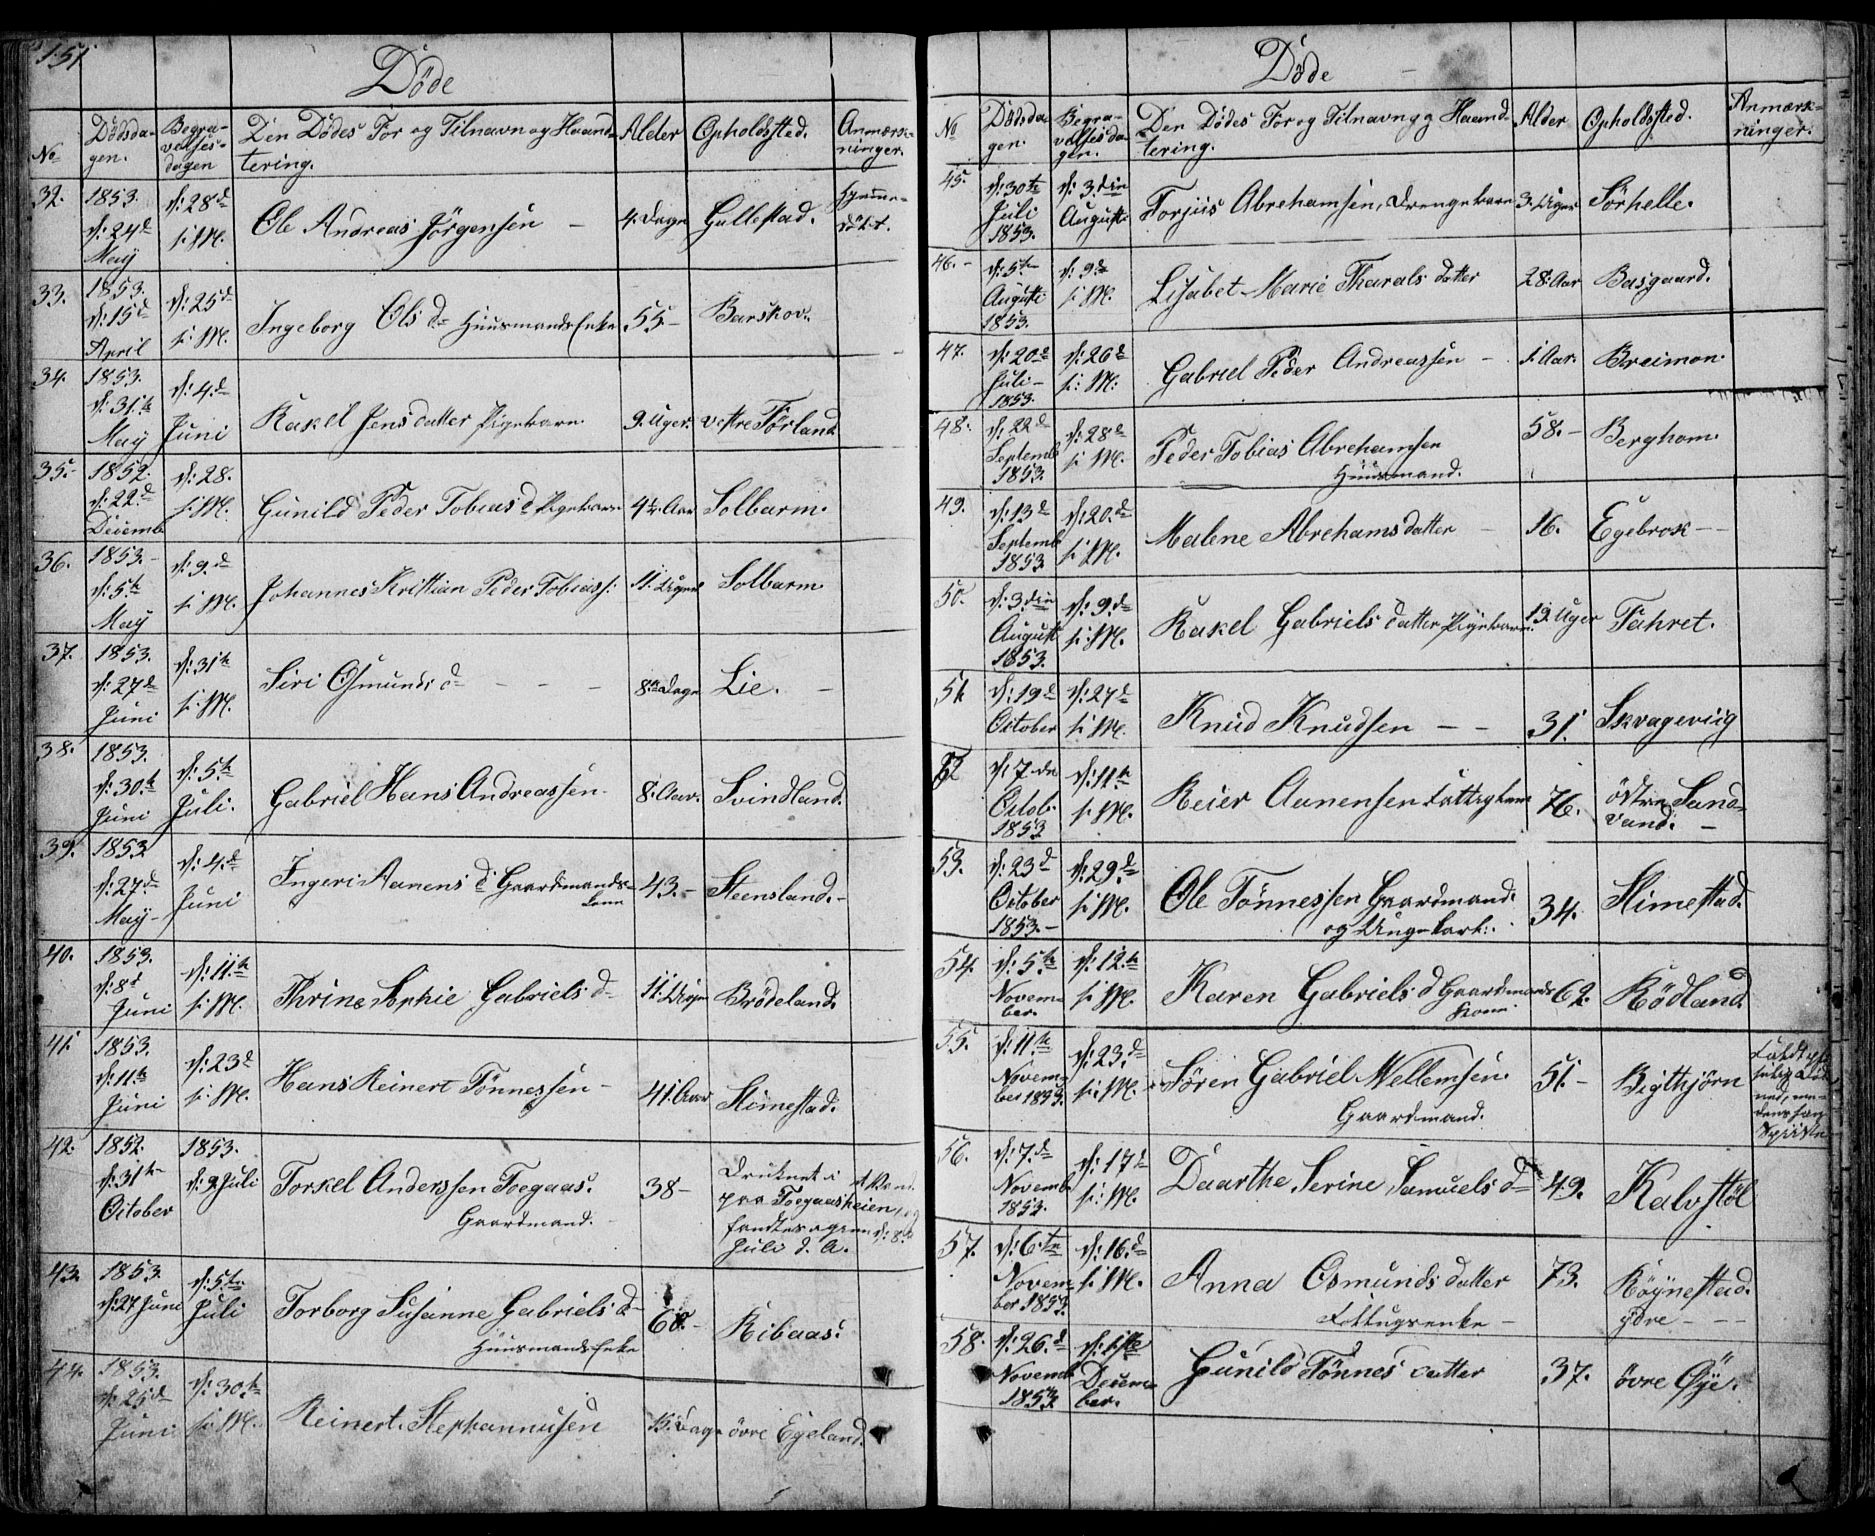 151
Döde
No
Dödsda-
gen.
Begra-
velses-
dagen
Den Dödes For og Tilnavn og Haand-
tering.
Alder
Opholdssted.
Anmærk-
ninger.
32.
1853.
d: 24d
May
d: 28d
s: M.
Ole Andreas Jörgensen
4 Dage
Gullestad.
Hjemme-
döbt.
33.
1853.
d: 15d
April
d: 25d
s: M.
Ingeborg Ols d- Huusmands Enke
55-
Barskov.
34.
1853.
d: 31te
May
d: 4d
Juni
Rakel Jens datter Pigebarn
9. Uger.
vestre Förland
35.
1852.
d: 22d
Decemb
d: 28.
s: M.
Gunild Peder Tobias d Pigebarn
4½ Aar
Solbarm.
36.
1853.-
d: 5te
May
d: 9.d
s: M.
Johannes Kristian Peder Tobiass:
11. Uger
Solbarm
37.
1853.
d: 27d
Juni
d: 31te
s: M.
Siri Osmunds d-
8. Dage
Lie.
38.
1853.
d: 30.te
Juni
d: 5.te
Juli.
Gabriel Hans Andreassen.
8. Aar.
Svindland.
39.
1853
d: 27d
May-
d: 4.d
Juni
Ingeri Aanens d Gaardmands-
kone
43.-
Steensland.-
40.
1853.
d: 8d
Juni
d: 11te
s: M.
Thrine Sophie Gabriels d-
11. Uger
Brödeland.
41.
1853.
d: 11te
Juni
d: 23d
s: M.
Hans Reinert Tönnessen
41. Aar
Stimestad.
42.
1852.
d: 31te
October
1853.
d: 9 Juli
Torkel Anderssen Toegaas.
Gaardmand.
38-
Druknet i et Vand
paa Toegaasheien, og
fandtes igjen d: 8de
Juli d. A.
43.
1853.
d: 27 Juni
d: 5te
Juli
Torborg Susanne Gabriels d-
Huusmands Enke
68.-
Ribaas.
44.
1853.
d: 25d
Juni
d: 30.te
s: M.
Reinert. Stephannusen
Dage
övre Egeland.
Döde
No
Dödsda-
gen.
Begra-
velsesda-
gen.
Den Dödes For og Tilnavn og Haand-
tering.
Alder
Opholdssted.
Anmærk-
ninger.
45.
d: 30te
Juli
1853.
d: 3. die
August
Torjus Abrehamsen, Drengebarn
3. Uger
Sörhelle.
46.-
d: 5te
August
1853.
d: 9de
s: M.
Lisabet Marie Tharals datter
28. Aar
Basgaard.
47.
d: 20.d
Juli-
1853.
d: 26d
s: M.
Gabriel Peder Andreassen -
1. Aar.
Breimon.
48.
d: 22d
Septemb
1853.
d: 28d
s: M.
Peder Tobias Abrehamsen
Huusmand.
58.-
Berghom.
49.
d: 13d
Septemb
1853
d: 20.de
s: M.
Malene Abrehams datter
16.
Egebrok --
50.
d: 3. die
August
1853.
d: 9.de
s: M.
Rakel Gabriels datter Pigebarn.
19. Uger
Fahret.
51.
d: 19d
October
d: 27d
s: M.
Knud Knudsen - -
31.
Skvageviig
52
d: 7de
Octob.
1853
d: 11te
s: M.
Reier Aanensen Fattiglem
76.
östre Sand-
vand. -
53.
d: 23d
October
1853.-
d: 29.de
s: M.
Ole Tönnessen Gaardmand.
og Ungekarl.
34.
Stimestad.
54.
d: 5te
Novem-
ber.
d: 12.te
s: M.
Karen Gabriels d Gaardmands
Kone.
62.
Rödland.
55.
d: 11.te
Novem-
ber 1853.
d: 23.de
s: M.
Sören Gabriel Vellemsen.
Gaardmand.
51.-
Bigthjörn
56.
d: 7.de
Novemb.
1853.
d: 17d
s: M.
Daarthe Serine Samuels d-
49.
Kalvstöl
57.
d: 6.te
Novem-
ber 1853.
d: 16.de
s: M.
Anna Osmunds datter
Fattigenke -
73.
Röynestad.
ydre - - -
58.
d: 26.d
Novemb
1853.
d: 1ste
Decem-
ber.
Gunild Tönnes datter
37.
övre Øye.